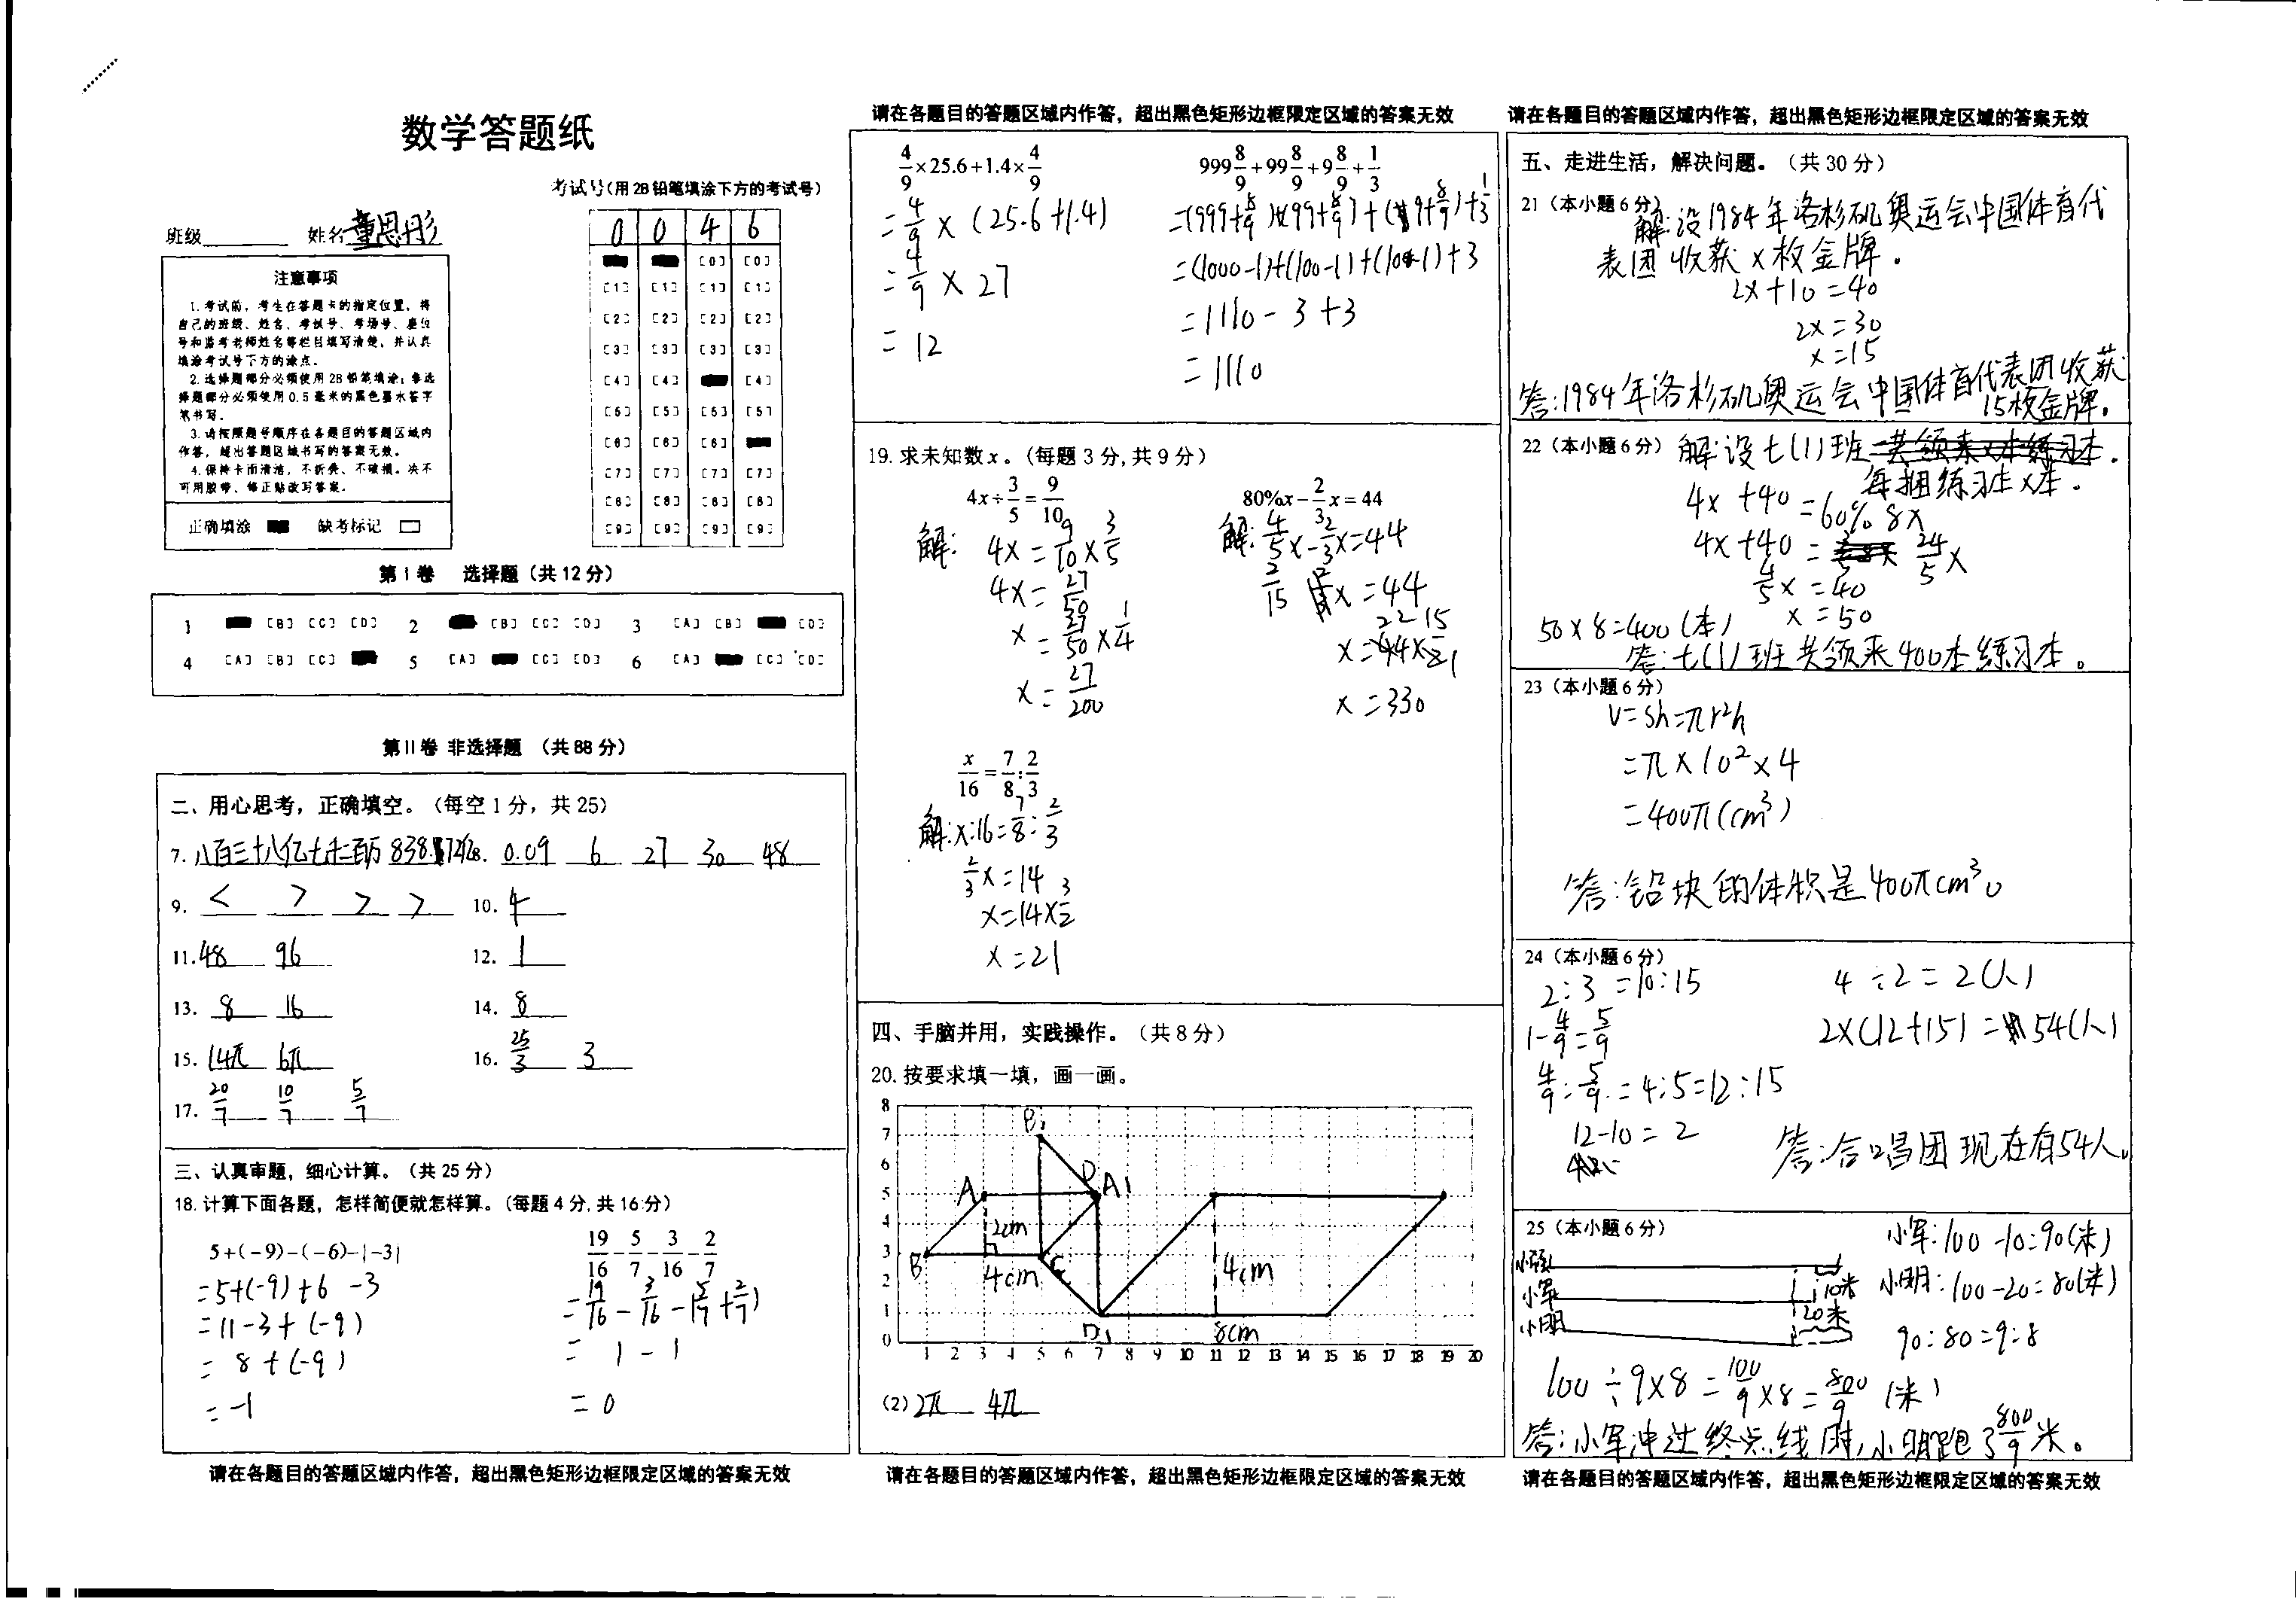 数学答题纸
考试号(用2B铅笔填涂下方的考试号)
班级 姓名 童思彤
0 0 4 6
[0] [0]
[1] [1] [1] [1]
[2] [2] [2] [2]
[3] [3] [3] [3]
[4] [4] [4]
[5] [5] [5] [5]
[6] [6] [6]
[7] [7] [7] [7]
[8] [8] [8] [8]
[9] [9] [9] [9]
注意事项
1.考试前，考生在答题卡的指定位置，将
自己的班级、姓名、考试号、考场号、座位
号和监考老师姓名等栏目填写清楚，并认真
填涂考试号下方的涂点。
2.选择题部分必须使用2B铅笔填涂；非选
择题部分必须使用0.5毫米的黑色墨水签字
笔书写。
3.请按照题号顺序在各题目的答题区域内
作答，超出答题区域书写的答案无效。
4.保持卡面清洁，不折叠、不破损。决不
可用胶带、修正贴改写答案。
正确填涂 缺考标记
第Ⅰ卷 选择题（共12分）
1 [B] [C] [D] 2 [B] [C] [D] 3 [A] [B] [D]
4 [A] [B] [C] 5 [A] [C] [D] 6 [A] [C] [D]
第Ⅱ卷 非选择题 （共88分）
二、用心思考，正确填空。（每空1分，共25）
7. 0.09 6 27 30 48
9. < > > > 10. 4
11. 48 96 12. 1
13. 8 16 14. 8
15. 14π 6π 16. 25/3 3
17. 20/7 10/7 5/7
三、认真审题，细心计算。（共25分）
18.计算下面各题，怎样简便就怎样算。（每题4分，共16分）
5+(-9)-(-6)-|-3|
=5+(-9)+6 -3
=11-3+(-9)
= 8+(-9)
=-1
19/16-5/7-3/16-2/7
=19/16-3/16-(5/7+2/7)
= 1-1
= 0
请在各题目的答题区域内作答，超出黑色矩形边框限定区域的答案无效
请在各题目的答题区域内作答，超出黑色矩形边框限定区域的答案无效
4/9×25.6+1.4×4/9
=4/9×(25.6+1.4)
=4/9×27
= 12
999 8/9+99 8/9+9 8/9+1/3
=(1000-1)+(100-1)+(10-1)+3
=1110-3+3
=1110
19.求未知数x。（每题3分,共9分）
4x÷3/5=9/10
解: 4x=9/10×3/5
4x=27/50
x=27/50×1/4
x=27/200
80%x-2/3x=44
解:4/5x-2/3x=44
2/15x=44
x=44×15/2
x=330
x/16=7/8:2/3
解:x:16=7/8:2/3
2/3x=14
x=14×3/2
x=21
四、手脑并用，实践操作。（共8分）
20.按要求填一填，画一画。
8
7 B₂
6 D
5 A A1
4 2cm
3 B C
2 4cm 4cm
1
0 D₁ 8cm
1 2 3 4 5 6 7 8 9 10 11 12 13 14 15 16 17 18 19 20
(2) 2π 4π
请在各题目的答题区域内作答，超出黑色矩形边框限定区域的答案无效
请在各题目的答题区域内作答，超出黑色矩形边框限定区域的答案无效
五、走进生活，解决问题。（共30分）
21（本小题6分）
解:设1984年洛杉矶奥运会中国体育代
表团收获x枚金牌.
2x+10=40
2x=30
x=15
答:1984年洛杉矶奥运会中国体育代表团收获
15枚金牌.
22（本小题6分） 解:设七(1)班
每捆练习本x本.
4x+40=60% 8x
4x+40= 24/5x
4/5x=40
x=50
50×8=400(本)
答:七(1)班共领来400本练习本。
23（本小题6分）
V=Sh=πr²h
=π×10²×4
=400π(cm³)
答:铅块的体积是400πcm³。
24（本小题6分）
2:3=10:15
1-4/9=5/9
4/9:5/9=4:5=12:15
12-10=2
4÷2=2(人)
2×(12+15)=54(人)
答:合唱团现在有54人。
25（本小题6分）
小强
小军 10米
小明 20米
小军:100-10=90(米)
小明:100-20=80(米)
90:80=9:8
100÷9×8=100/9×8=800/9(米)
答:小军冲过终点线时,小明跑了800/9米。
请在各题目的答题区域内作答，超出黑色矩形边框限定区域的答案无效